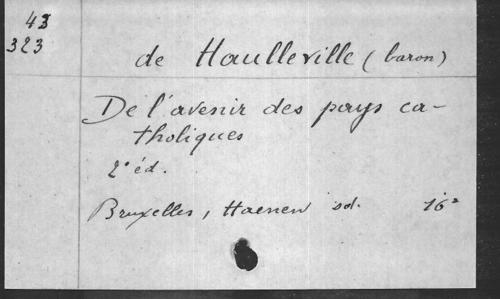 43
323
de Haulleville (baron)
De l'avenir des pays ca-
tholiques
2e éd.
Bruxelles, Haenen sd. 16°